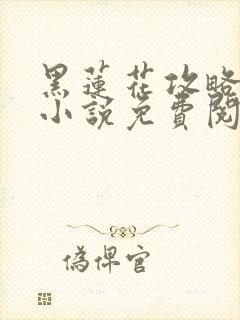 黑蓮花攻略
小說免費閱
偽俾官